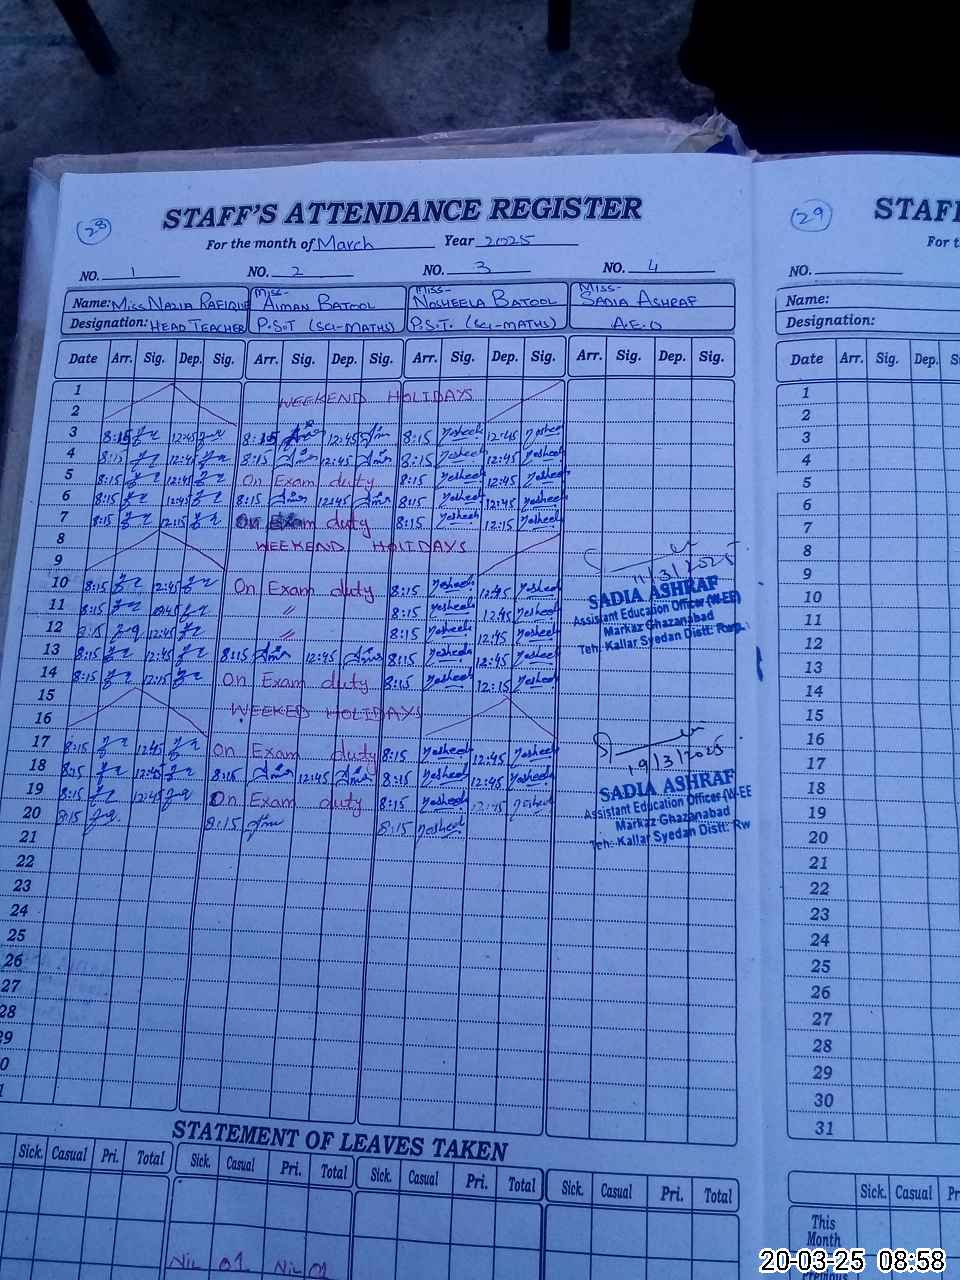 28
STAFF'S ATTENDANCE REGISTER
For the month of March Year 2025
NO. 1 NO. 2 NO. 3 NO. 4
Name: Miss NAZIA RAFIQUE Miss- AIMAN BATOOL Miss- NOSHEELA BATOOL Miss- SADIA ASHRAF
Designation: HEAD TEACHER P.S.T (SCI-MATHS) P.S.T. (SCI-MATHS) A.E.O
Date Arr. Sig. Dep. Sig. Arr. Sig. Dep. Sig. Arr. Sig. Dep. Sig. Arr. Sig. Dep. Sig.
1 WEEKEND HOLIDAYS
2
3 8:15 12:45 8:15 12:45 8:15 12:45
4 8:15 12:45 8:15 12:45 8:15 12:45
5 8:15 12:45 On Exam duty 8:15 12:45
6 8:15 12:45 8:15 12:45 8:15 12:45
7 8:15 12:15 On Exam duty 8:15 12:15
8 WEEKEND HOLIDAYS
9
10 8:15 12:45 On Exam duty 8:15 12:45
11 8:15 12:45 〃 8:15 12:45
12 8:15 12:45 〃 8:15 12:45
13 8:15 12:45 8:15 12:45 8:15 12:45
14 8:15 12:15 On Exam duty 8:15 12:15
15
16 WEEKED HOLIDAYS
17 8:15 12:45 On Exam duty 8:15 12:45
18 8:15 12:45 8:15 12:45 8:15 12:45
19 8:15 12:45 On Exam duty 8:15 12:45
20 8:15 8:15 8:15
21
22
23
24
25
26
27
28
29
0
11/3/2025
SADIA ASHRAF
Assistant Education Officer (W-EE)
Markaz Ghazanabad
Teh: Kallar Syedan Distt: Rwp.
19/3/2025
SADIA ASHRAF
Assistant Education Officer (W-EE
Markaz Ghazanabad
Teh: Kallar Syedan Distt: Rw
STATEMENT OF LEAVES TAKEN
Sick. Casual Pri. Total Sick. Casual Pri. Total Sick. Casual Pri. Total Sick. Casual Pri. Total
Nil 01 Nil 01
29
STAFF
For t
NO.
Name:
Designation:
Date Arr. Sig. Dep. S
1
2
3
4
5
6
7
8
9
10
11
12
13
14
15
16
17
18
19
20
21
22
23
24
25
26
27
28
29
30
31
Sick. Casual Pr
This
Month
Previous
20-03-25 08:58